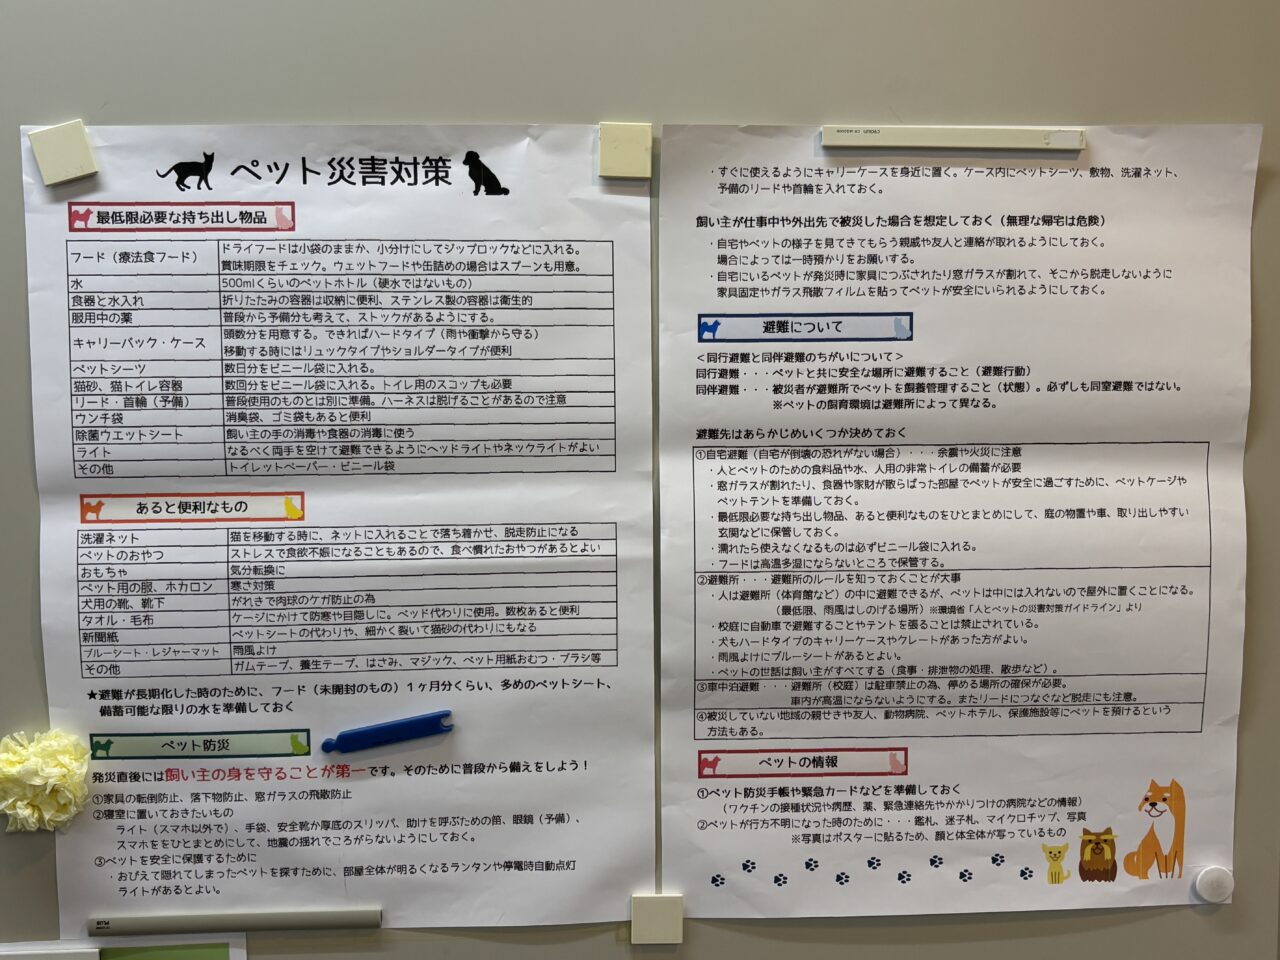 ペット災害対策
最低限必要な持ち出し物品
フード（療法食フード）
ドライフードは小袋のままか、小分けにしてジップロックなどに入れる。
賞味期限をチェック。ウェットフードや缶詰めの場合はスプーンも用意。
水
500mlくらいのペットボトル（硬水ではないもの）
食器と水入れ
折りたたみの容器は収納に便利、ステンレス製の容器は衛生的
服用中の薬
普段から予備分も考えて、ストックがあるようにする。
キャリーバック・ケース
頭数分を用意する。できればハードタイプ（雨や衝撃から守る）
移動する時にはリュックタイプやショルダータイプが便利
ペットシーツ
数日分をビニール袋に入れる。
猫砂、猫トイレ容器
数回分をビニール袋に入れる。トイレ用のスコップも必要
リード・首輪（予備）
普段使用のものとは別に準備。ハーネスは脱げることがあるので注意
ウンチ袋
消臭袋、ゴミ袋もあると便利
除菌ウエットシート
飼い主の手の消毒や食器の消毒に使う
ライト
なるべく両手を空けて避難できるようにヘッドライトやネックライトがよい
その他
トイレットペーパー・ビニール袋
あると便利なもの
洗濯ネット
猫を移動する時に、ネットに入れることで落ち着かせ、脱走防止になる
ペットのおやつ
ストレスで食欲不振になることもあるので、食べ慣れたおやつがあるとよい
おもちゃ
気分転換に
ペット用の服、ホカロン
寒さ対策
犬用の靴、靴下
がれきで肉球のケガ防止の為
タオル・毛布
ケージにかけて防寒や目隠しに。ベッド代わりに使用。数枚あると便利
新聞紙
ペットシートの代わりや、細かく裂いて猫砂の代わりにもなる
ブルーシート・レジャーマット
雨風よけ
その他
ガムテープ、養生テープ、はさみ、マジック、ペット用紙おむつ・ブラシ等
★避難が長期化した時のために、フード（未開封のもの）１ヶ月分くらい、多めのペットシート、
備蓄可能な限りの水を準備しておく
ペット防災
発災直後には飼い主の身を守ることが第一です。そのために普段から備えをしよう！
①家具の転倒防止、落下物防止、窓ガラスの飛散防止
②寝室に置いておきたいもの
ライト（スマホ以外で）、手袋、安全靴か厚底のスリッパ、助けを呼ぶための笛、眼鏡（予備）、
スマホををひとまとめにして、地震の揺れでころがらないようにしておく。
③ペットを安全に保護するために
・おびえて隠れてしまったペットを探すために、部屋全体が明るくなるランタンや停電時自動点灯
ライトがあるとよい。
PLUS
・すぐに使えるようにキャリーケースを身近に置く。ケース内にペットシーツ、敷物、洗濯ネット、
予備のリードや首輪を入れておく。
飼い主が仕事中や外出先で被災した場合を想定しておく（無理な帰宅は危険）
・自宅やペットの様子を見てきてもらう親戚や友人と連絡が取れるようにしておく。
場合によっては一時預かりをお願いする。
・自宅にいるペットが発災時に家具につぶされたり窓ガラスが割れて、そこから脱走しないように
家具固定やガラス飛散フィルムを貼ってペットが安全にいられるようにしておく。
避難について
＜同行避難と同伴避難のちがいについて＞
同行避難・・・ペットと共に安全な場所に避難すること（避難行動）
同伴避難・・・被災者が避難所でペットを飼養管理すること（状態）。必ずしも同室避難ではない。
※ペットの飼育環境は避難所によって異なる。
避難先はあらかじめいくつか決めておく
①自宅避難（自宅が倒壊の恐れがない場合）・・・余震や火災に注意
・人とペットのための食料品や水、人用の非常トイレの備蓄が必要
・窓ガラスが割れたり、食器や家財が散らばった部屋でペットが安全に過ごすために、ペットケージや
ペットテントを準備しておく。
・最低限必要な持ち出し物品、あると便利なものをひとまとめにして、庭の物置や車、取り出しやすい
玄関などに保管しておく。
・濡れたら使えなくなるものは必ずビニール袋に入れる。
・フードは高温多湿にならないところで保管する。
②避難所・・・避難所のルールを知っておくことが大事
・人は避難所（体育館など）の中に避難できるが、ペットは中には入れないので屋外に置くことになる。
（最低限、雨風はしのげる場所）※環境省「人とペットの災害対策ガイドライン」より
・校庭に自動車で避難することやテントを張ることは禁止されている。
・犬もハードタイプのキャリーケースやクレートがあった方がよい。
・雨風よけにブルーシートがあるとよい。
・ペットの世話は飼い主がすべてする（食事・排泄物の処理、散歩など）。
③車中泊避難・・・避難所（校庭）は駐車禁止の為、停める場所の確保が必要。
車内が高温にならないようにする。またリードにつなぐなど脱走にも注意。
④被災していない地域の親せきや友人、動物病院、ペットホテル、保護施設等にペットを預けるという
方法もある。
ペットの情報
①ペット防災手帳や緊急カードなどを準備しておく
（ワクチンの接種状況や病歴、薬、緊急連絡先やかかりつけの病院などの情報）
②ペットが行方不明になった時のために・・・鑑札、迷子札、マイクロチップ、写真
※写真はポスターに貼るため、顔と体全体が写っているもの